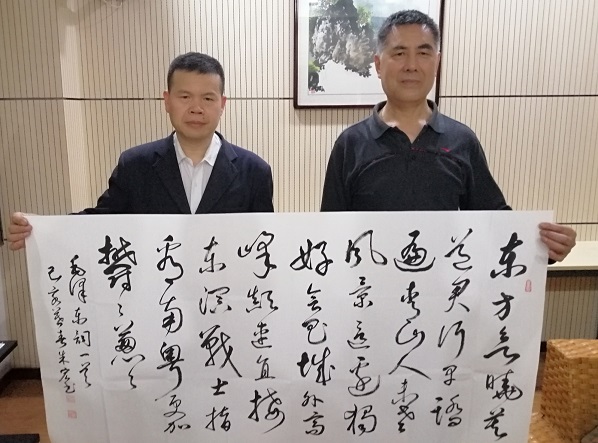 东方欲晓莫
道君行早踏
遍青山人未老
风景这边独
好会昌城外高
峰颠连直接
东溟战士指
看南粤更加
鬱々葱々
毛泽东词一首
己亥暮春朱